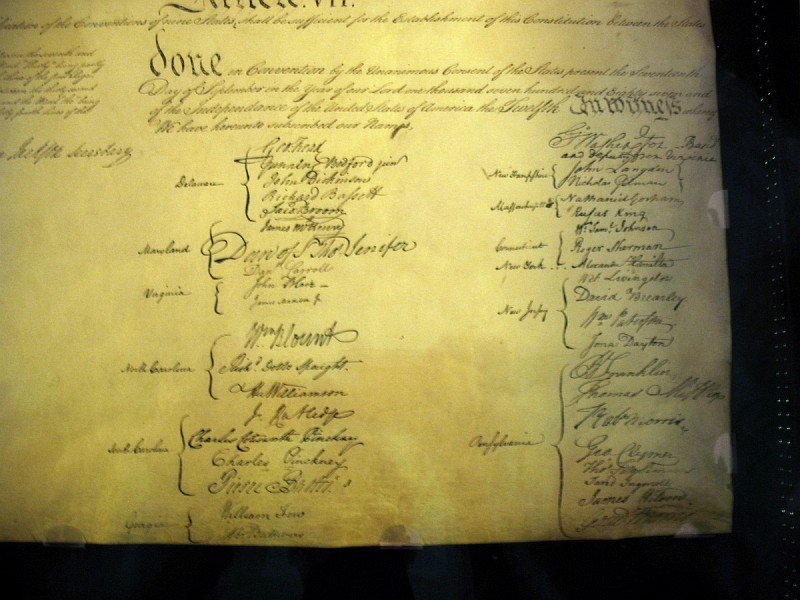 Article. VII.
of the Conventions of nine States, shall be sufficient for the Establishment of this Constitution between the States
done in Convention by the Unanimous Consent of the States present the Seventeenth
Day of September in the Year of our Lord one thousand seven hundred and Eighty seven and
of the Independance of the United States of America the Twelfth In Witness
We have hereunto subscribed our Names,
Go: Washington
and deputy from Virginia
Delaware
Geo: Read
Gunning Bedford jun
John Dickinson
Richard Bassett
Jaco: Broom
Maryland
James McHenry
Dan of St Thos Jenifer
Danl Carroll
Virginia
John Blair
James Madison Jr
North Carolina
Wm Blount
Richd Dobbs Spaight.
Hu Williamson
South Carolina
J. Rutledge
Charles Cotesworth Pinckney
Charles Pinckney
Pierce Butler.
Georgia
William Few
Abr Baldwin
New Hampshire
John Langdon
Nicholas Gilman
Massachusetts
Nathaniel Gorham
Rufus King
Connecticut
Wm Saml Johnson
Roger Sherman
New York
Alexander Hamilton
New Jersey
Wil: Livingston
David Brearley
Wm Paterson
Jona: Dayton
Pensylvania
B Franklin
Thomas Mifflin
Robt Morris
Geo. Clymer
Jared Ingersoll
James Wilson